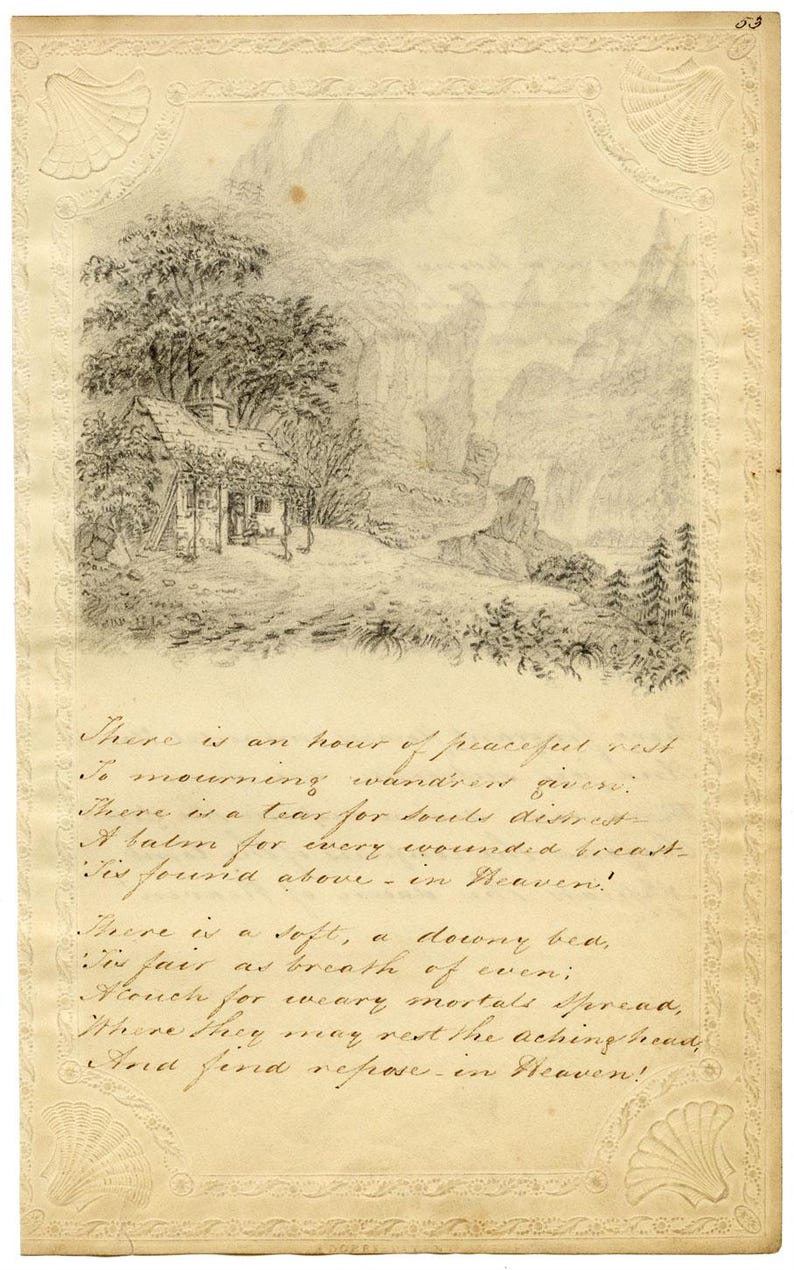 53
There is an hour of peaceful rest
To mourning wand'rers given:
There is a tear for souls distrest—
A balm for every wounded breast—
'Tis found above - in Heaven!
There is a soft, a downy bed,
'Tis fair as breath of even;
A couch for weary mortals spread,
Where they may rest the aching head,
And find repose - in Heaven!